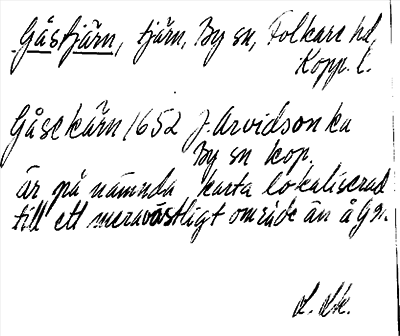 Gåstjärn, tjärn, By sn, Folkare hd,
Kopp. l.
Gåsekärn 1652 J. Arvidson ka
By sn kop.
är på nämnda karta lokaliserad
till ett meravästligt område än å GSK.